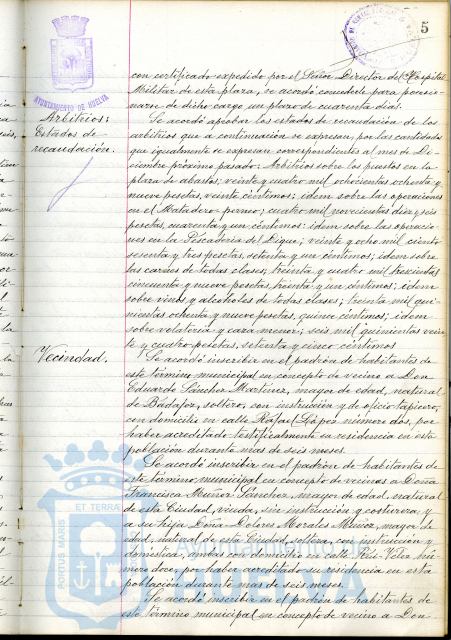 5
AYUNTAMIENTO DE HUELVA
con certificado expedido por el Señor Director del Hospital
Militar de esta plaza, se acordó concederle para posesio-
narse de dicho cargo un plazo de cuarenta dias.
Arbitrios:
Estados de
recaudación.
Se acordó aprobar los estados de recaudación de los
arbitrios que a continuación se expresan, por las cantidades
que igualmente se expresan correspondientes al mes de Di-
ciembre próximo pasado: Arbitrios sobre los puestos en la
plaza de abastos; veinte y cuatro mil ochocientas ochenta y
nueve pesetas, veinte céntimos; idem sobre las operaciones
en el Matadero perneo; cuatro mil novecientas diez y seis
pesetas, cuarenta y un céntimos: idem sobre las operacio-
nes en la Pescaderia del Dique; veinte y ocho mil ciento
sesenta y tres pesetas, setenta y un céntimos; idem sobre
las carnes de todas clases; treinta y cuatro mil trescientas
cincuenta y nueve pesetas, treinta y un céntimos; idem
sobre vinos y alcoholes de todas clases; treinta mil qui-
nientas ochenta y nueve pesetas, quince céntimos; idem
sobre volateria y caza menor; seis mil quinientas vein-
te y cuatro pesetas, setenta y cinco céntimos
Vecindad.
Se acordó inscribir en el padrón de habitantes de
este término municipal en concepto de vecino a Don
Eduardo Sánchez Martínez, mayor de edad, natural
de Badajoz, soltero, con instrucción y de oficio tapicero,
con domicilio en calle Rafael López número dos, por
haber acreditado testificalmente su residencia en esta
población durante mas de seis meses.
Se acordó inscribir en el padrón de habitantes de
este término municipal en concepto de vecinas a Doña
Francisca Muñoz Sánchez, mayor de edad, natural
de esta Ciudad, viuda, sin instrucción y costurera, y
a su hija Doña Dolores Morales Muñoz, mayor de
edad, natural de esta Ciudad, soltera, con instrucción y
doméstica, ambas con domicilio en calle Vela nú-
mero doce, por haber acreditado su residencia en esta
población durante mas de seis meses.
Se acordó inscribir en el padrón de habitantes de
este término municipal en concepto de vecino a Don
PORTUS MARIS ET TERRAE